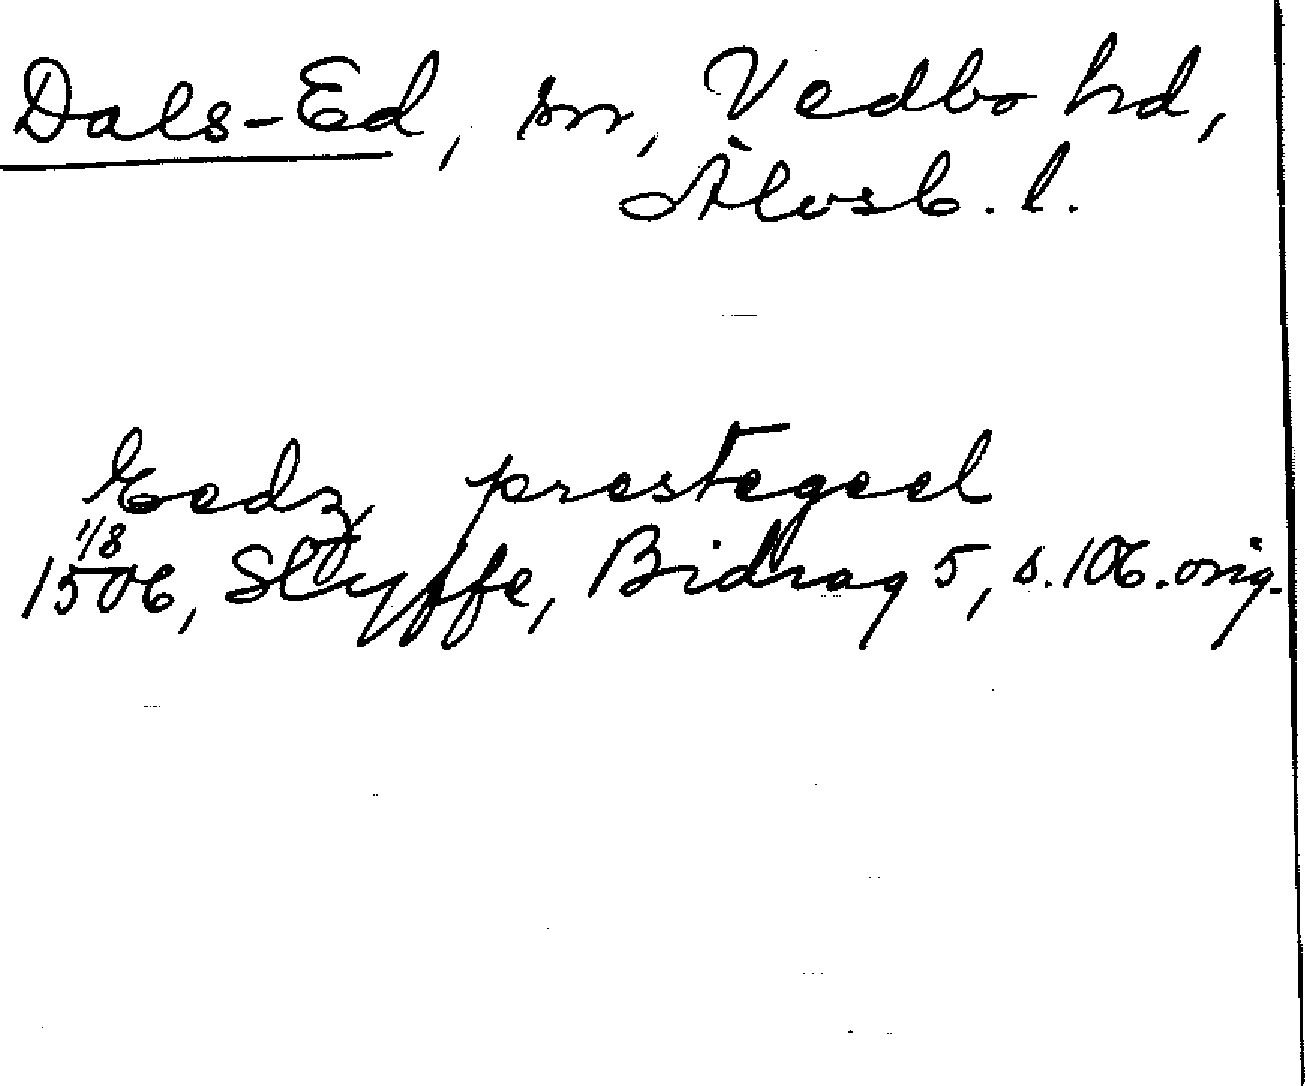 Dals-Ed, sn, Vedbo hd,
Älvsb. l.
Eedz prestegeel
1/8
1506, Styffe, Bidrag 5, s. 106. orig.